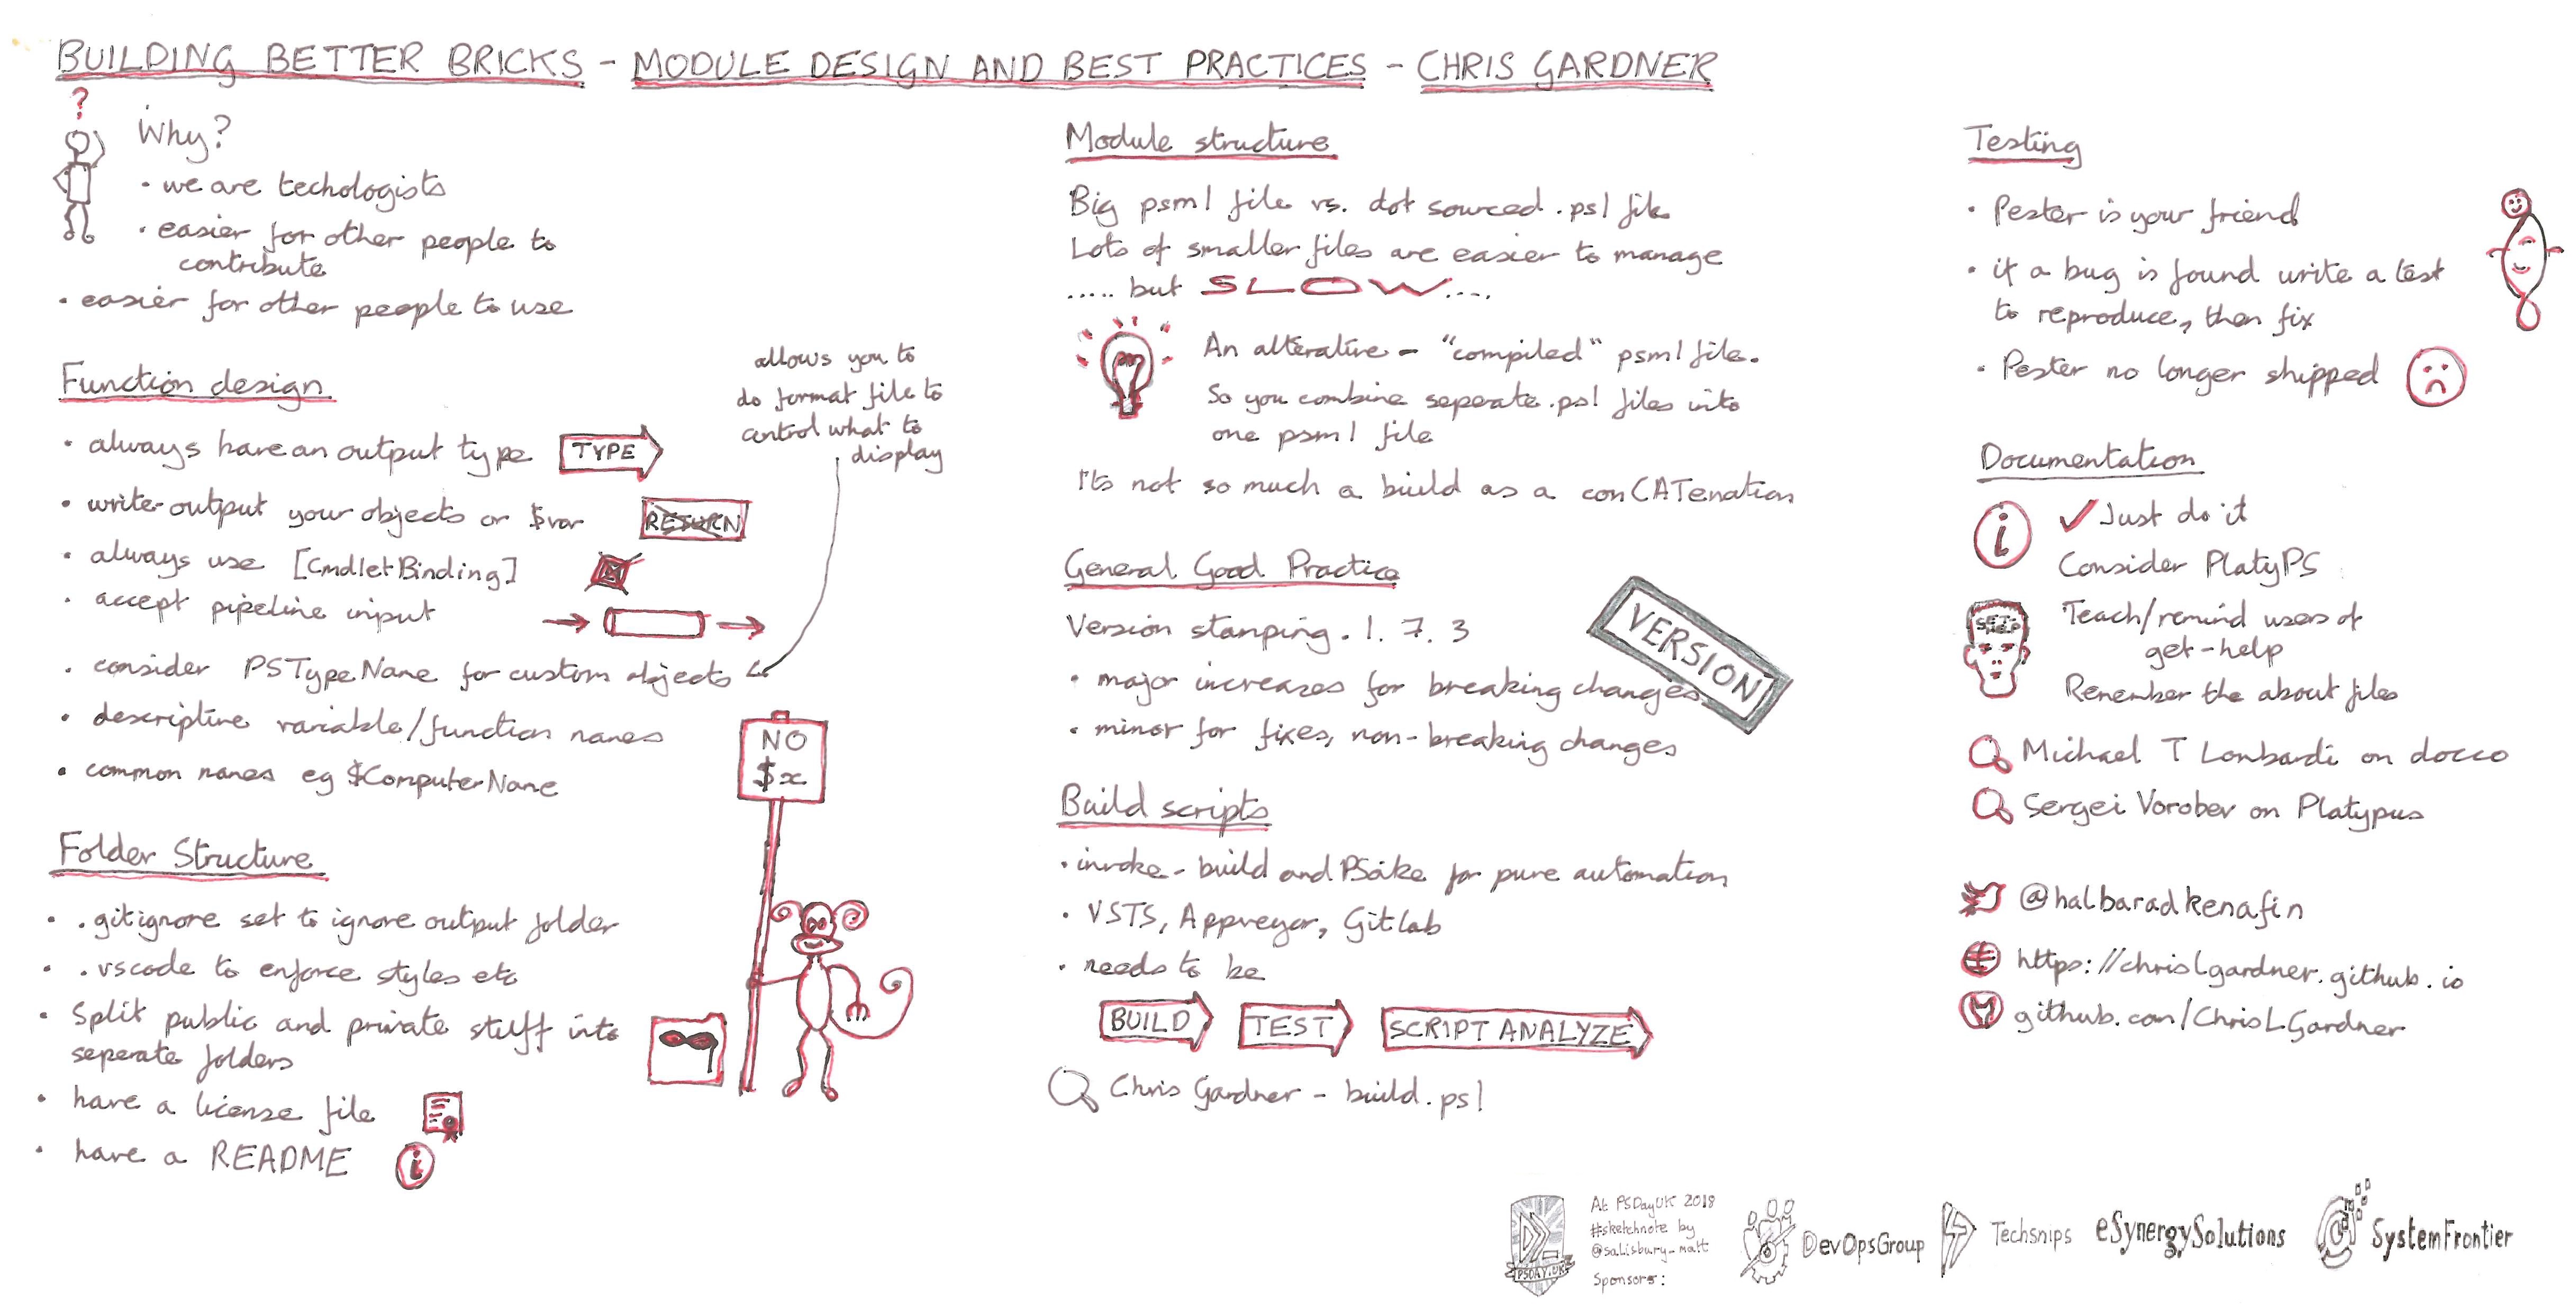 BUILDING BETTER BRICKS - MODULE DESIGN AND BEST PRACTICES - CHRIS GARDNER
?
Why?
• we are techologists
• easier for other people to
contribute
• easier for other people to use
Function design
allows you to
do format file to
control what to
display
• always have an output type
TYPE
• write-output your objects or $var
RETURN
• always use [CmdletBinding]
• accept pipeline input
• consider PSTypeName for custom objects
• descriptive variable/function names
• common names eg $ComputerName
NO
$x
Folder Structure
• .gitignore set to ignore output folder
• .vscode to enforce styles etc
• Split public and private stuff into
seperate folders
• have a license file
• have a README
i
Module structure
Big psm1 file vs. dot sourced .ps1 file
Lots of smaller files are easier to manage
..... but SLOW....
An alterative - "compiled" psm1 file.
So you combine seperate .ps1 files into
one psm1 file
It's not so much a build as a conCATenation
General Good Practice
Version stamping. 1.7.3
VERSION
• major increases for breaking changes
• minor for fixes, non-breaking changes
Build scripts
• invoke-build and PSake for pure automation
• VSTS, Appveyor, GitLab
• needs to be
BUILD
TEST
SCRIPT ANALYZE
Chris Gardner - build.ps1
Testing
• Pester is your friend
• if a bug is found write a test
to reproduce, then fix
• Pester no longer shipped
Documentation
i
✓ Just do it
Consider PlatyPS
Teach/remind users of
get-help
Remember the about files
Michael T Lombardi on docco
Sergei Vorobev on Platypus
@halbaradkenafin
https://chrislgardner.github.io
github.com/ChrisLGardner
PSDAY.UK
At PSDayUK 2018
#sketchnote by
@salisbury_matt
Sponsors:
DevOpsGroup
Techsnips
eSynergySolutions
SystemFrontier